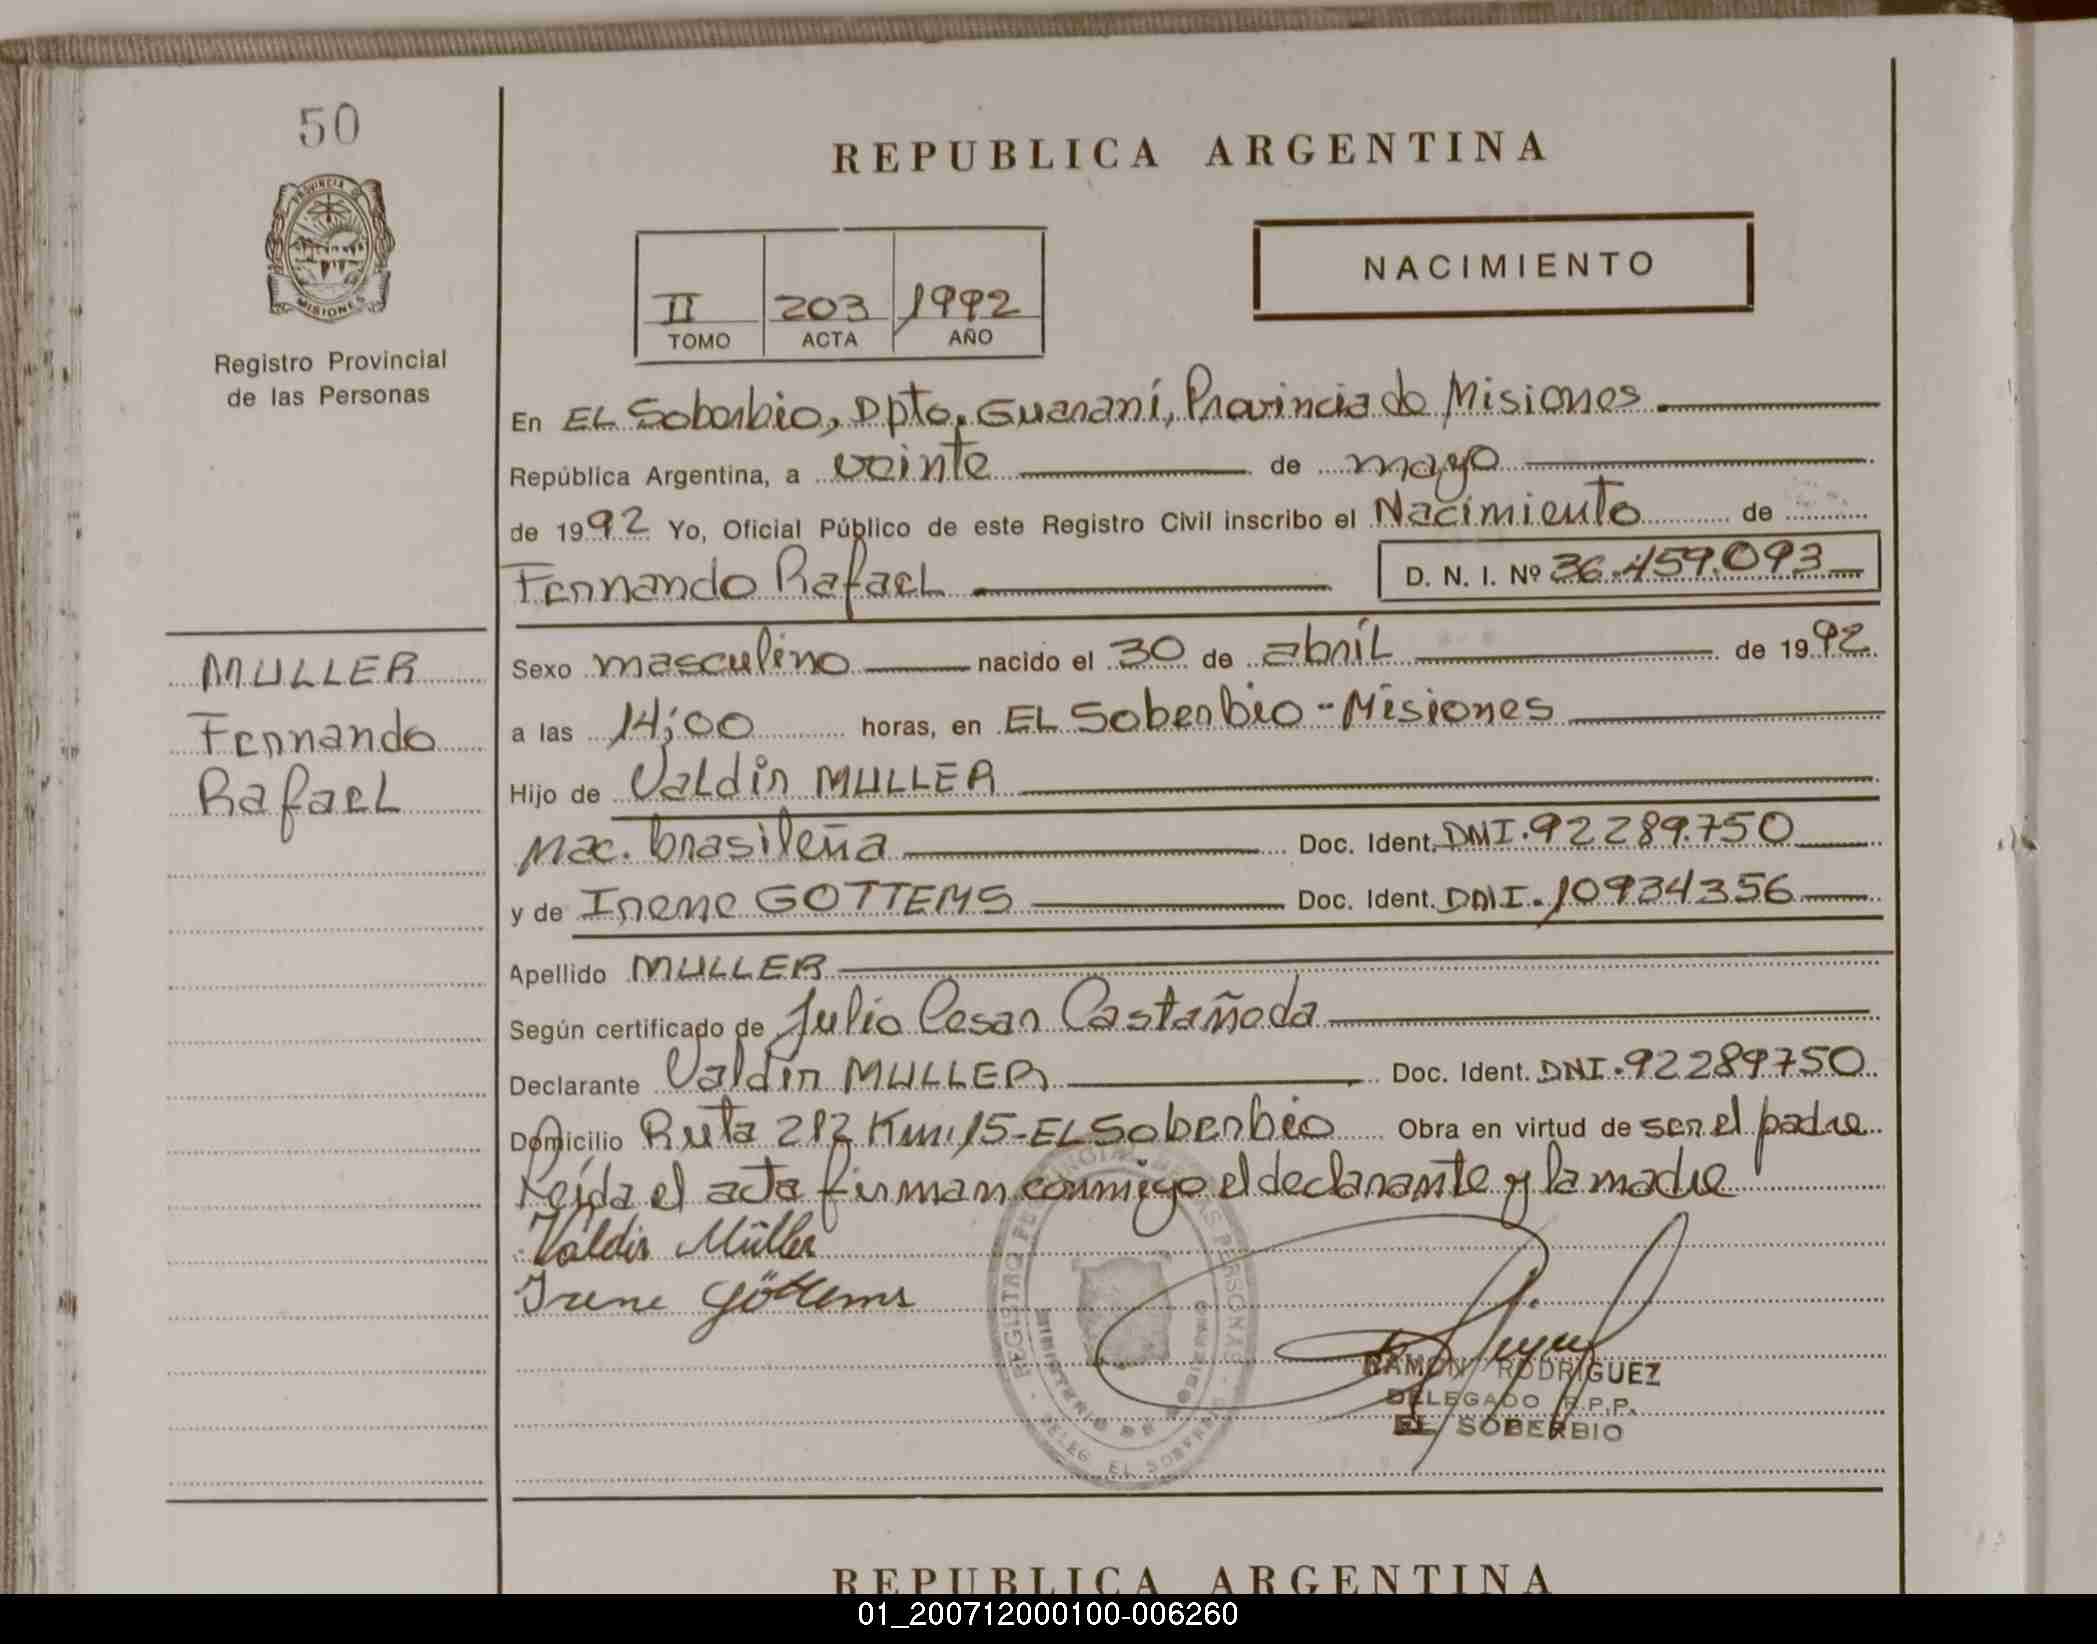 50
REPUBLICA ARGENTINA
PROVINCIA DE
MISIONES
NACIMIENTO
II 203 1992
TOMO ACTA AÑO
Registro Provincial
de las Personas
En EL Soberbio, Dpto. Guaraní, Provincia de Misiones.
República Argentina, a veinte de mayo
de 1992 Yo, Oficial Público de este Registro Civil inscribo el Nacimiento de
Fernando Rafael D. N. I. Nº 36.459.093
MULLER
Fernando
Rafael
Sexo masculino nacido el 30 de abril de 1992
a las 14;00 horas, en EL Soberbio - Misiones
Hijo de Valdir MULLER
Nac. brasileña Doc. Ident. DNI. 92289.750
y de Irene GOTTEMS Doc. Ident. DNI. 10934356
Apellido MULLER
Según certificado de Julio Cesar Castañeda
Declarante Valdir MULLER Doc. Ident. DNI. 92289750
Domicilio Ruta 212 Km. 15 - EL Soberbio Obra en virtud de ser el padre
Leída el acta firman conmigo el declarante y la madre
Valdir Müller
Irene Göttems
REGISTRO PROVINCIAL DE LAS PERSONAS
MINISTERIO DE GOBIERNO
DELEG. EL SOBERBIO
RAMON RODRIGUEZ
DELEGADO R.P.P.
EL SOBERBIO
REPUBLICA ARGENTINA
01_200712000100-006260